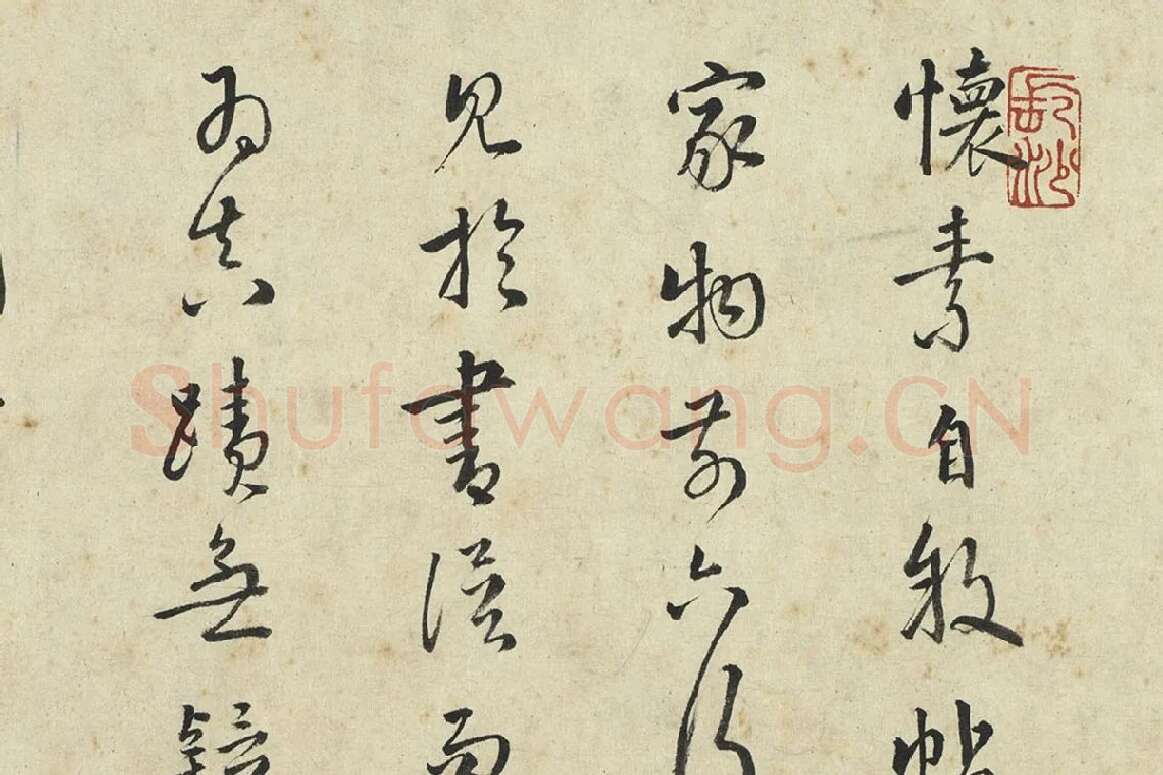 懷素自敘帖
家物前六行
見於書從而
為真蹟無
Shufawang.CN